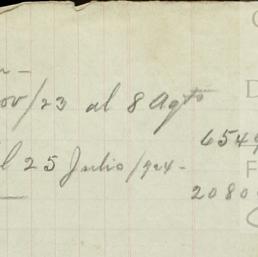 ov/23 al 8 Agto
6549
l 25 Julio/924-
2080